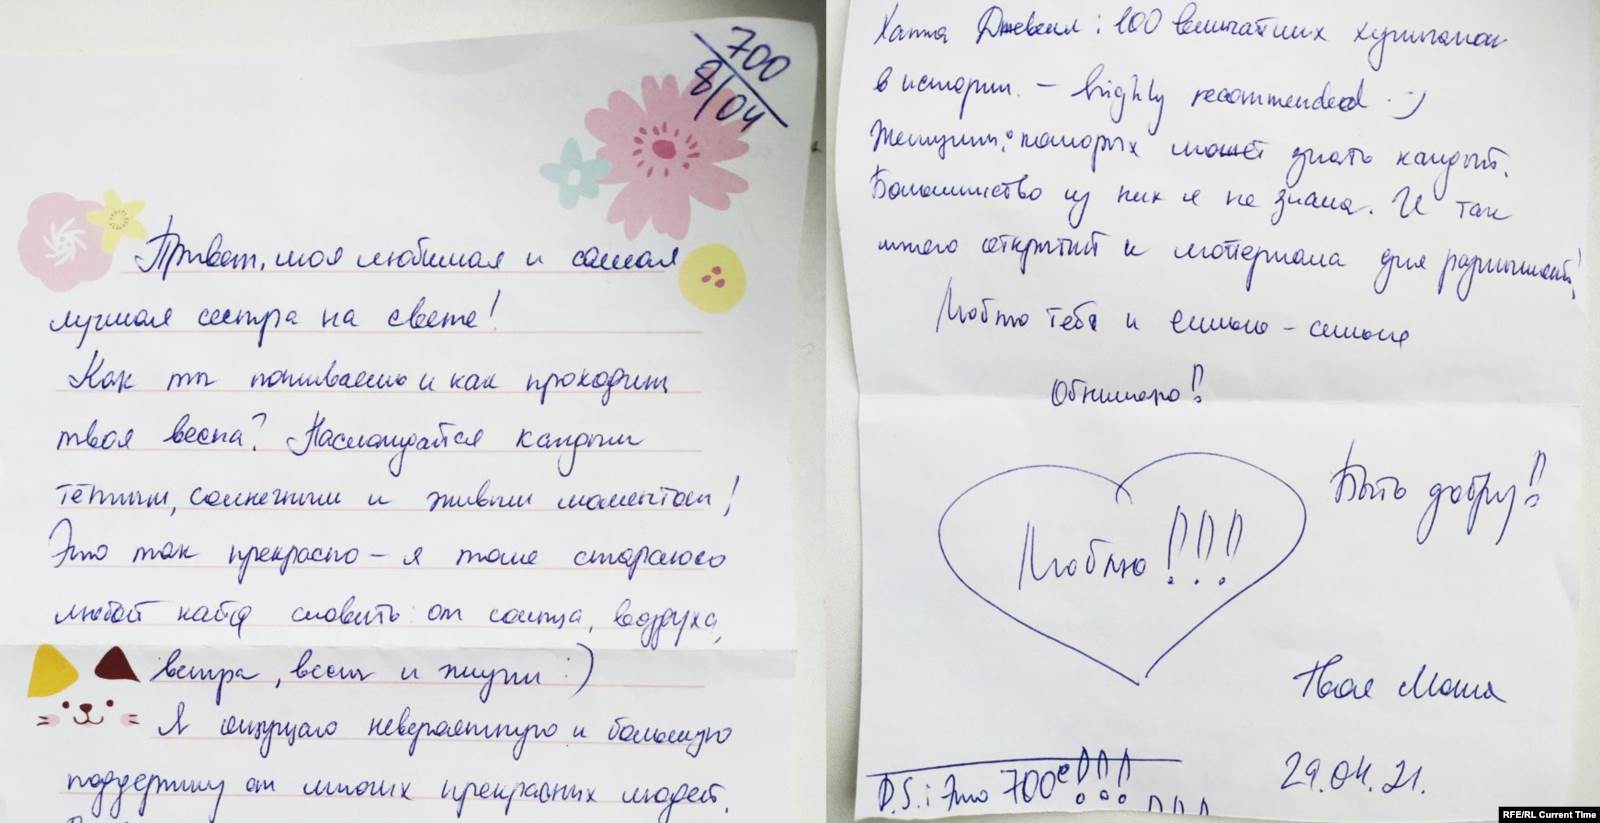 700
8/04
Привет, моя любимая и самая
лучшая сестра на свете!
Как ты поживаешь и как проходит
твоя весна? Наслаждайся каждым
тёплым, солнечным и живым моментом!
Это так прекрасно – я тоже стараюсь
любой кайф словить от солнца, воздуха,
ветра, весны и жизни :)
Я ощущаю невероятную и большую
поддержку от многих прекрасных людей.
Ханна Джевелл: 100 величайших хулиганок
в истории. – highly recommended :)
Женщины, которых может знать каждый.
Большинство из них я не знала. И так
много открытий и материала для размышлений!
Люблю тебя и сильно-сильно
Обнимаю!!
Быть добру!!
Люблю!!!
Твоя Маша
29.04.21.
P.S.: Это 700е!!!
RFE/RL Current Time